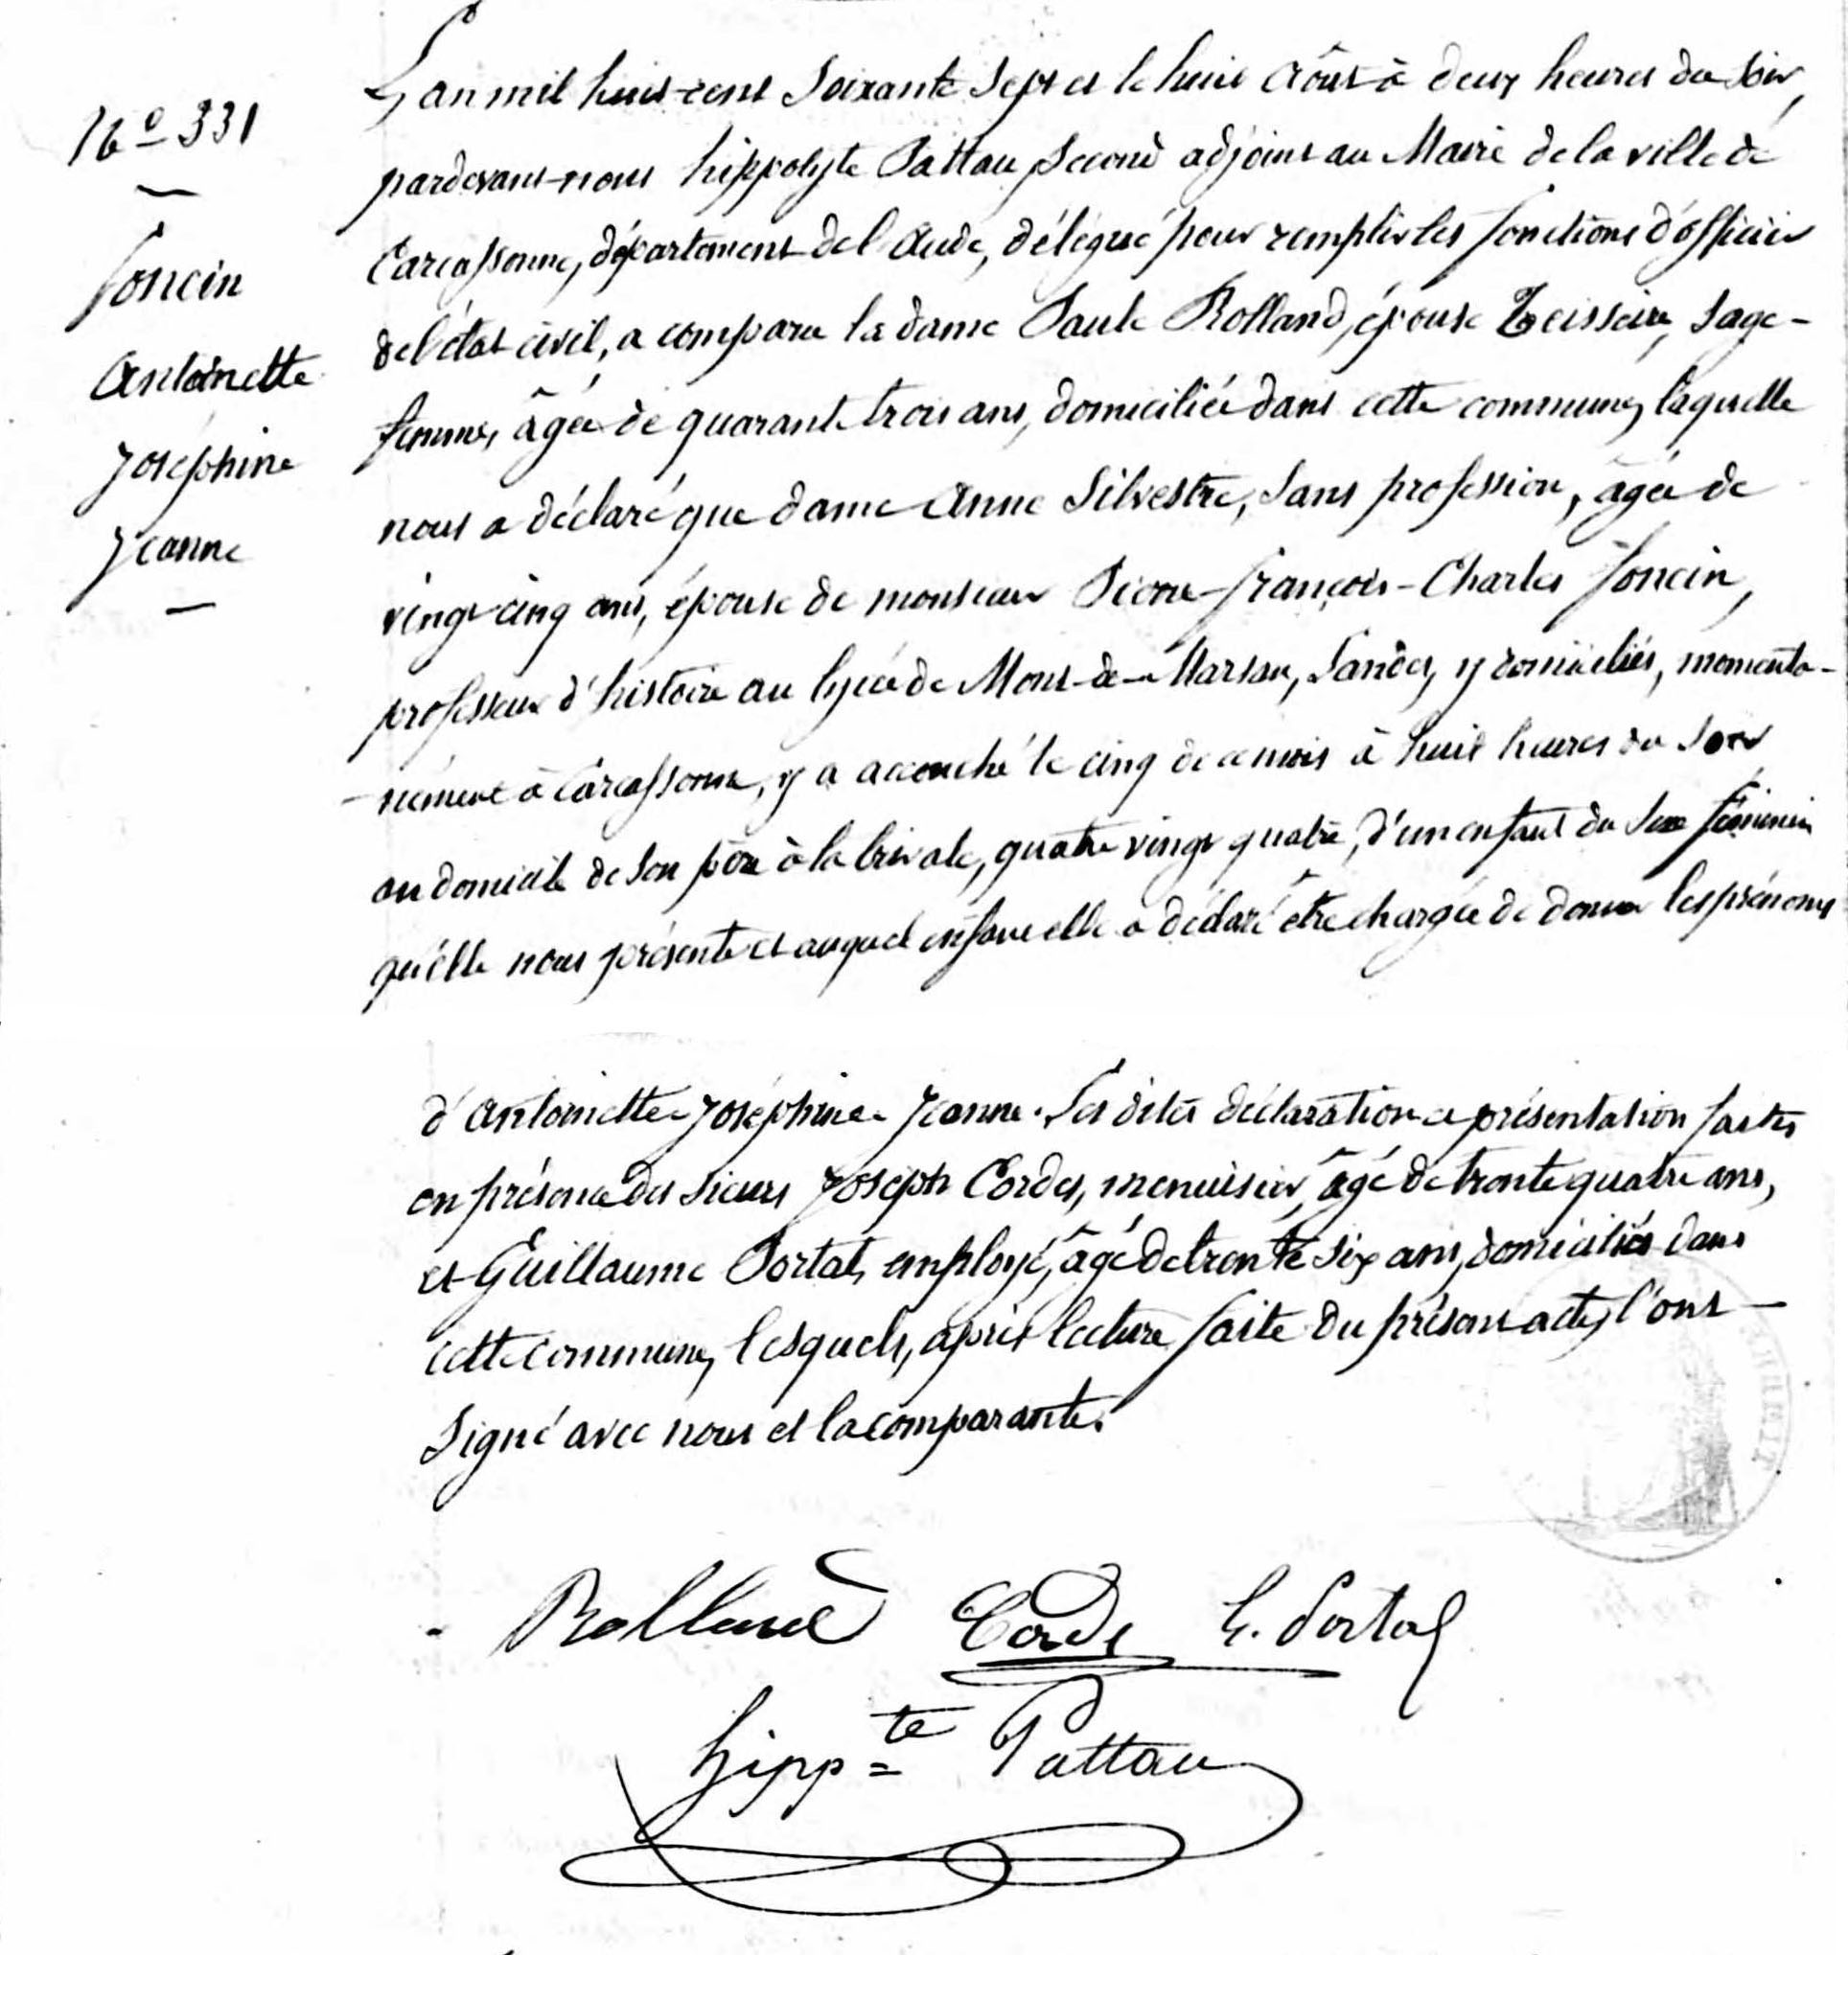 N° 331
Foncin
Antoinette
Joséphine
Jeanne
L'an mil huit-cent soixante sept et le huit août à deux heures du soir,
pardevant-nous hippolyte Pattau second adjoint au Maire de la ville de
Carcassonne, département de l'Aude, délégué pour remplir les fonctions d'officier
de l'état civil, a comparu la dame Paule Rolland, épouse Teisseire, sage-
femme, âgée de quarante trois ans, domiciliée dans cette commune, laquelle
nous a déclaré que dame Anne Silvestre, sans profession, âgée de
vingt-cinq ans, épouse de monsieur Pierre-françois-Charles foncin,
professeur d'histoire au lycée de Mont-de-Marsan, Landes, y domiciliés, momenta-
-nément à Carcassonne, y a accouché le cinq de ce mois à huit heures du soir
au domicile de son père à la trivale, quatre vingt quatre, d'un enfant du sexe féminin
qu'elle nous présente et auquel enfant elle a déclaré être chargée de donner les prénoms
d'Antoinette-Joséphine-Jeanne. Les dites déclaration et présentation faites
en présence des sieurs Joseph Cordes, menuisier, âgé de trente quatre ans,
et Guillaume Portal, employé, âgé de trente six ans, domiciliés dans
cette commune, lesquels, après lecture faite du présent acte, l'ont
signé avec nous et la comparante.
Rolland Cordes G. Portal
hipp te Pattau